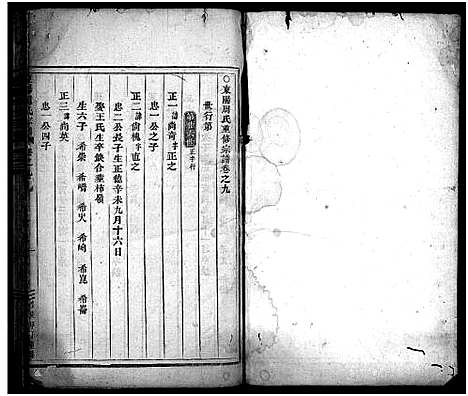 ○東陽周氏重修宗譜卷之九
世行第
正字行
正一諱尚奇字正之
忠一公之子
正二諱尚槐字直之
忠二公長子生正德辛未九月十六日
娶王氏生卒缺合葬柿㘭
生六子 希榮 希嚼 希火 希 希崑 希
正三諱尚英
忠一公四子